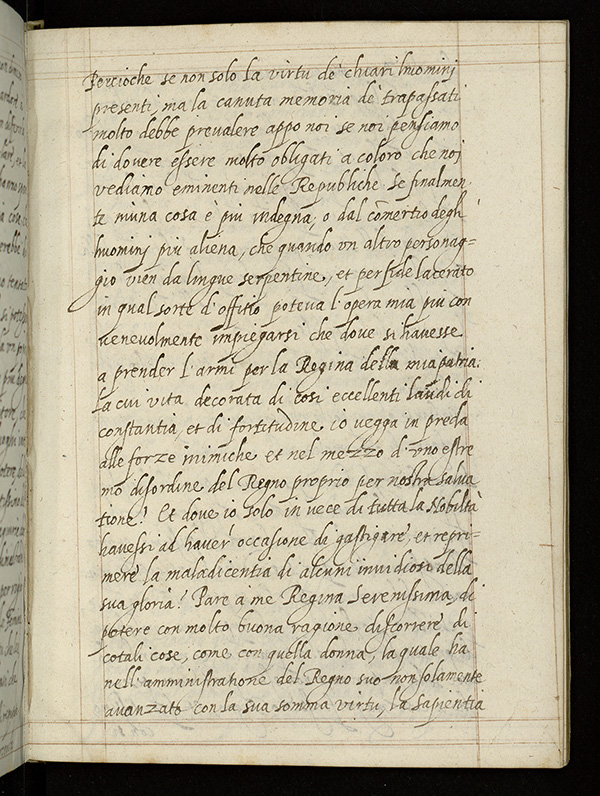 Percioche se non solo la virtu de' chiari huominj
presenti, ma la canuta memoria de' trapassati
molto debbe prevalere appo noi se noi pensiamo
di dovere essere molto obligati a coloro che noj
vediamo eminenti nelle Republiche se finalmen
te niuna cosa è piu indegna, o dal comertio degli
huominj piu aliena, che quando un altro personag=
gio vien da lingue serpentine, et perfide lacerato
in qual sorte d'offitio poteva l'opera mia piu con
uenevolmente impiegarsi che dove si havesse
a prender l'armi per la Regina della mia patria:
la cui vita decorata di cosi eccellenti laudi di
constantia, et di fortitudine io vegga in preda
alle forze inimiche et nel mezzo d'uno estre
mo disordine del Regno proprio per nostra salva
tione? Et dove io solo in vece di tutta la Nobiltà
havessi ad haver occasione di gastigare, et repri=
mere la maladicentia di alcuni invidiosi della
sua gloria? Pare a me Regina Serenissima, di
potere con molto buona ragione discorrere di
cotali cose, come con quella donna, la quale ha
nell'amministratione del Regno suo non solamente
avanzato con la sua somma virtu, la sapientia